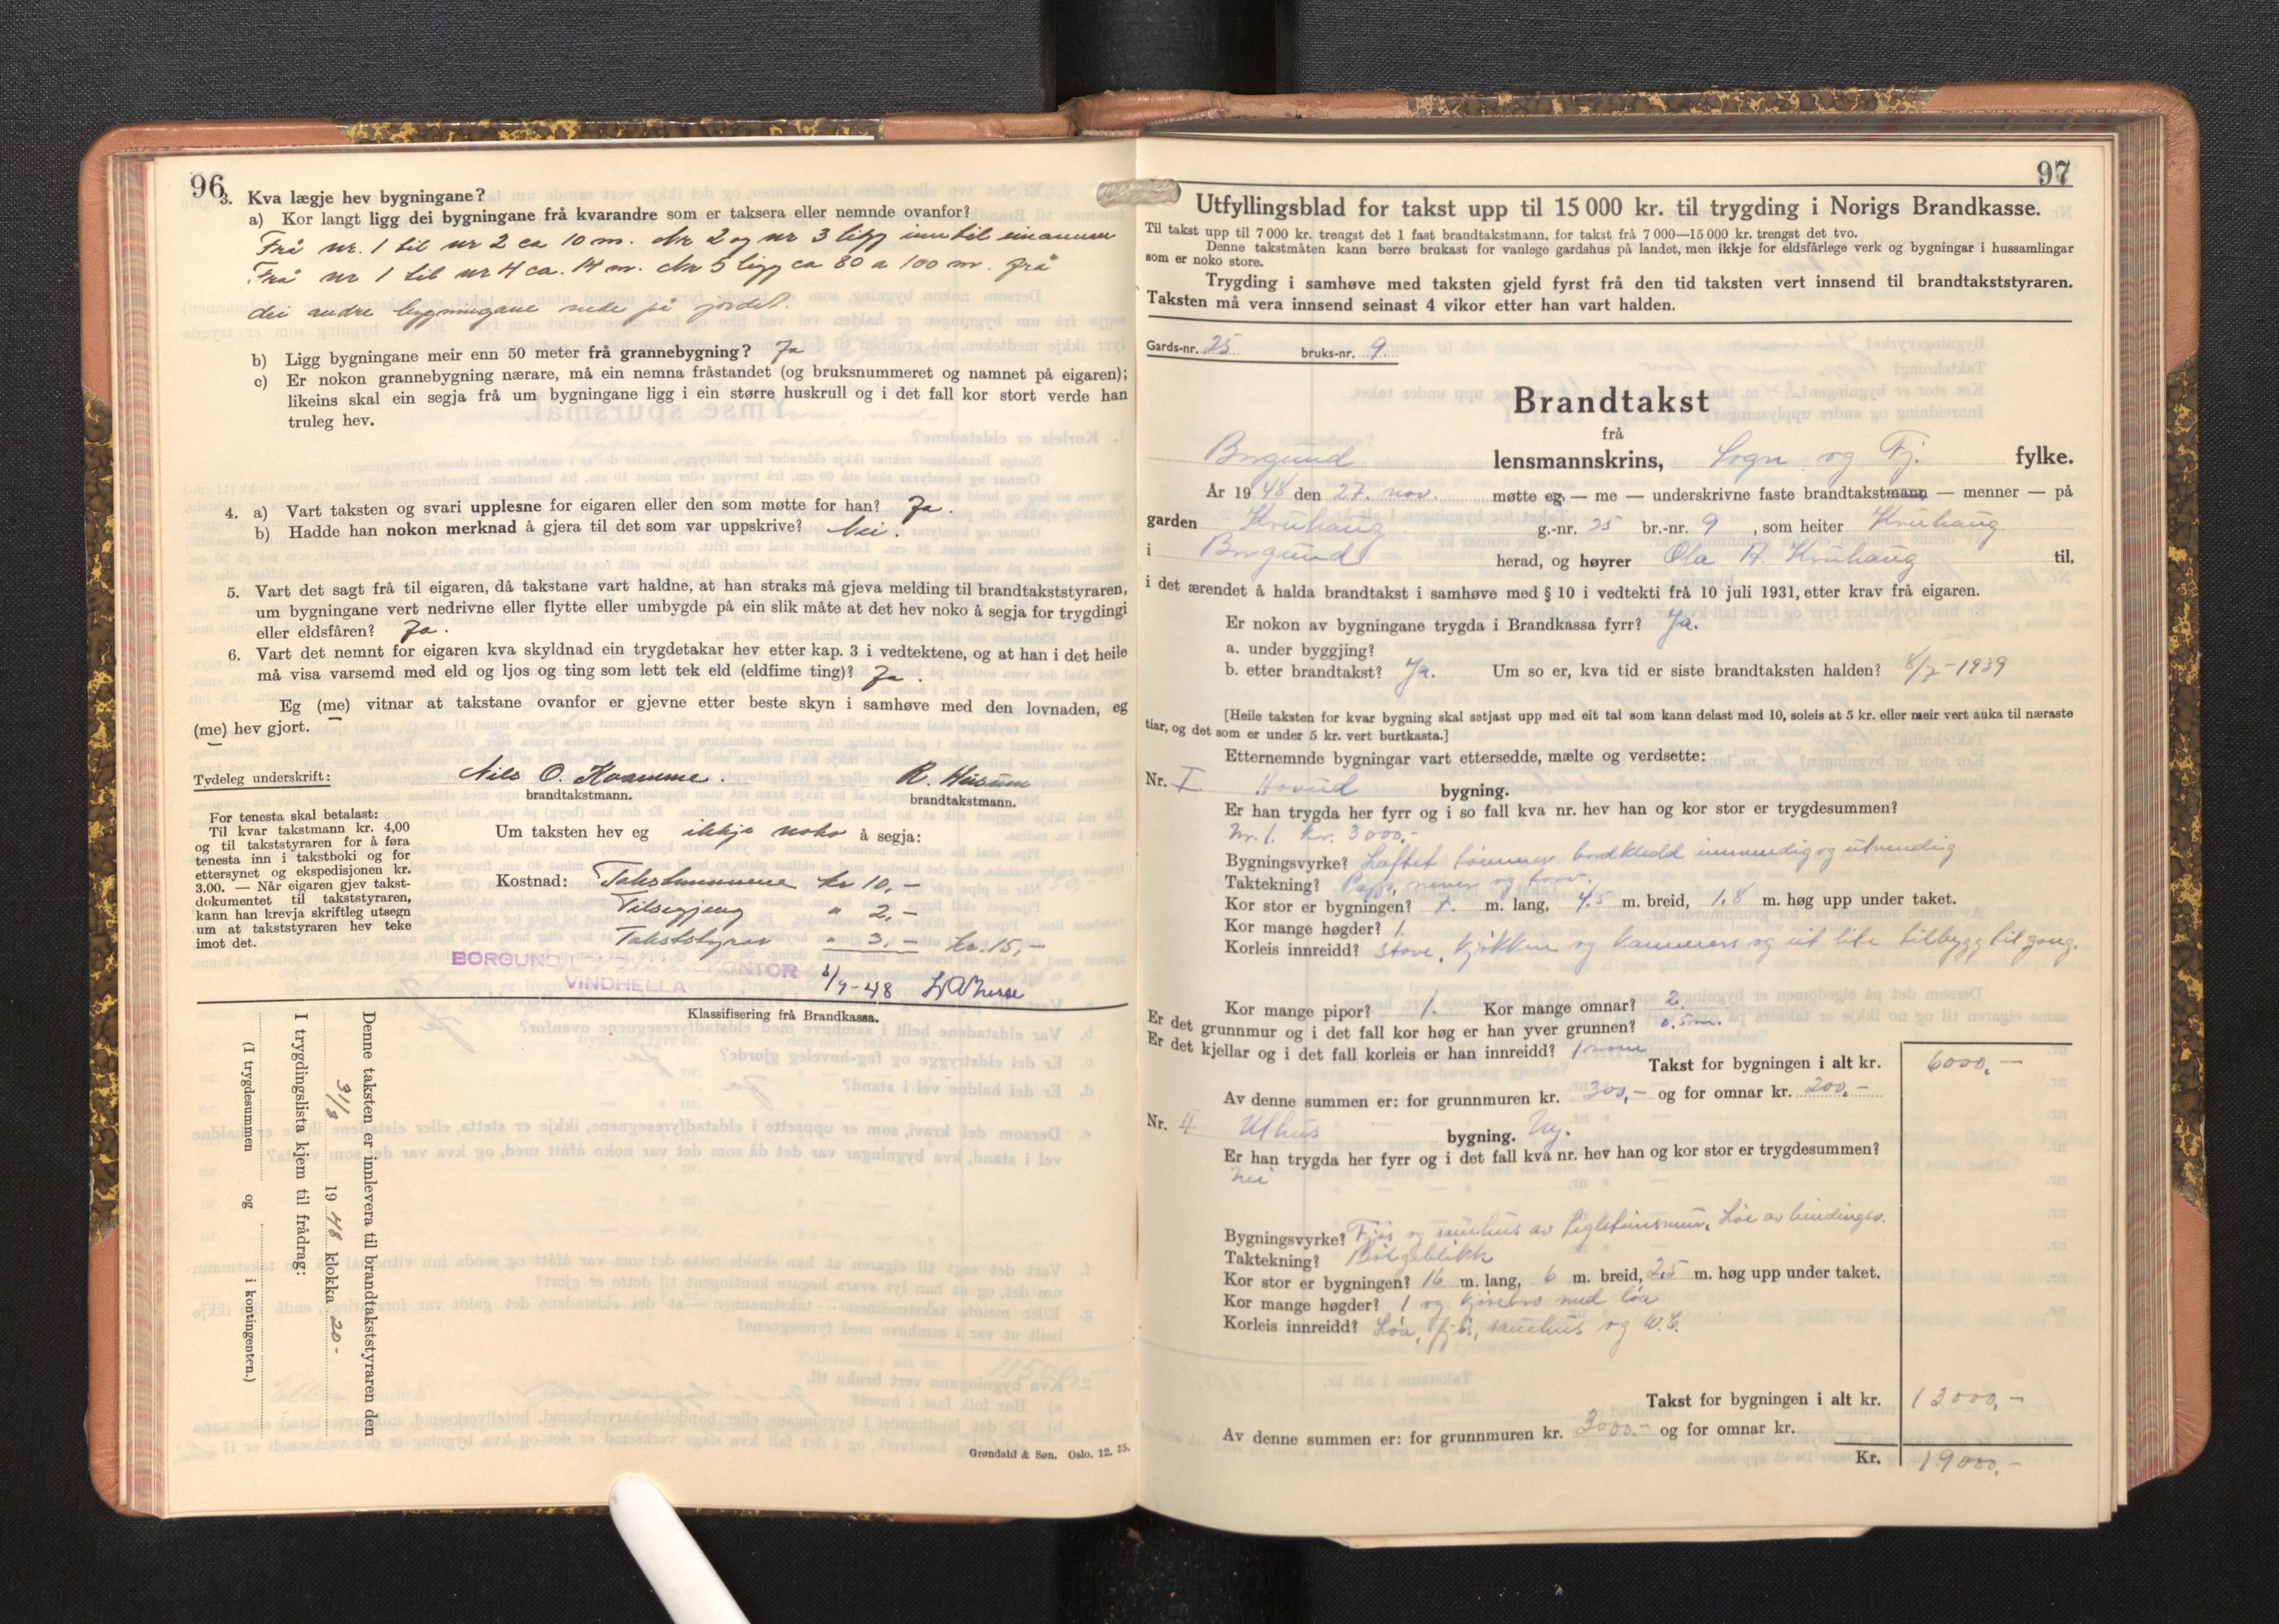 96
3. Kva lægje hev bygningane?
a) Kor langt ligg dei bygningane frå kvarandre som er taksera eller nemnde ovanfor?
Frå nr. 1 til nr 2 ca 10 m. Nr 2 og nr 3 ligg inntil einannan
Frå nr 1 til nr 4 ca. 14 m. Nr 5 ligg ca 80 a 100 m. frå
dei andre bygningane nede på jordet.
b) Ligg bygningane meir enn 50 meter frå grannebygning? Ja
c) Er nokon grannebygning nærare, må ein nemna fråstandet (og bruksnummeret og namnet på eigaren);
likeins skal ein segja frå um bygningane ligg i ein større huskrull og i det fall kor stort verde han
truleg hev.
4. a) Vart taksten og svari upplesne for eigaren eller den som møtte for han? Ja.
b) Hadde han nokon merknad å gjera til det som var uppskrive? Nei.
5. Vart det sagt frå til eigaren, då takstane vart haldne, at han straks må gjeva melding til brandtakststyraren,
um bygningane vert nedrivne eller flytte eller umbygde på ein slik måte at det hev noko å segja for trygdingi
eller eldsfåren? Ja.
6. Vart det nemnt for eigaren kva skyldnad ein trygdetakar hev etter kap. 3 i vedtektene, og at han i det heile
må visa varsemd med eld og ljos og ting som lett tek eld (eldfime ting)? Ja.
Eg (me) vitnar at takstane ovanfor er gjevne etter beste skyn i samhøve med den lovnaden, eg
(me) hev gjort.
Tydeleg underskrift: Nils O. Kvamme. R. Husum
brandtakstmann. brandtakstmann.
For tenesta skal betalast:
Til kvar takstmann kr. 4,00
og til takststyraren for å føra
tenesta inn i takstboki og for
ettersynet og ekspedisjonen kr.
3.00. — Når eigaren gjev takst-
dokumentet til takststyraren,
kann han krevja skriftleg utsegn
um at takststyraren hev teke
imot det.
Um taksten hev eg ikkje noko å segja:
Kostnad: Takstmennene kr 10,-
Tilsegjing " 2,-
Takststyrar " 3,- kr. 15,-
BORGUND KONTOR
VINDHELLA
/9-48
Klassifisering frå Brandkassa.
Denne taksten er innlevera til brandtakststyraren den
31/8 19 48 klokka 20-
I trygdingslista kjem til frådrag:
(I trygdesummen og i kontingenten.)
Grøndahl & Søn. Oslo. 12. 35.
97
Utfyllingsblad for takst upp til 15 000 kr. til trygding i Norigs Brandkasse.
Til takst upp til 7 000 kr. trengst det 1 fast brandtakstmann, for takst frå 7 000—15 000 kr. trengst det tvo.
Denne takstmåten kann berre brukast for vanlege gardshus på landet, men ikkje for eldsfårlege verk og bygningar i hussamlingar
som er noko store.
Trygding i samhøve med taksten gjeld fyrst frå den tid taksten vert innsend til brandtakststyraren.
Taksten må vera innsend seinast 4 vikor etter han vart halden.
Gards-nr. 25 bruks-nr. 9.
Brandtakst
frå
Borgund lensmannskrins, Sogn og Fj. fylke.
År 1948 den 27. nov. møtte eg — me — underskrivne faste brandtakstmann — menner — på
garden Kruhaug g.-nr. 25 br.-nr. 9, som heiter Kruhaug
i Borgund herad, og høyrer Ola A. Kruhaug til,
i det ærendet å halda brandtakst i samhøve med § 10 i vedtekti frå 10 juli 1931, etter krav frå eigaren.
Er nokon av bygningane trygda i Brandkassa fyrr? Ja.
a. under byggjing?
b. etter brandtakst? Ja. Um so er, kva tid er siste brandtaksten halden? 8/7-1939
[Heile taksten for kvar bygning skal setjast upp med eit tal som kann delast med 10, soleis at 5 kr. eller meir vert auka til næraste
tiar, og det som er under 5 kr. vert burtkasta.]
Etternemnde bygningar vart ettersedde, mælte og verdsette:
Nr. I Hovud bygning.
Er han trygda her fyrr og i so fall kva nr. hev han og kor stor er trygdesummen?
Nr. 1. Kr. 3000,-
Bygningsvyrke? Laftet tømmer bordkledd innvendig og utvendig
Taktekning? Papp, never og torv.
Kor stor er bygningen? 7. m. lang, 4,5 m. breid, 1,8 m. høg upp under taket.
Kor mange høgder? 1.
Korleis innreidd? Stove, kjøkken og kammers og eit lite tilbygg til gang.
Kor mange pipor? 1. Kor mange omnar? 2.
Er det grunnmur og i det fall kor høg er han yver grunnen? 0,5 m.
Er det kjellar og i det fall korleis er han innreidd? 1 rom
Takst for bygningen i alt kr. 6000,-
Av denne summen er: for grunnmuren kr. 300,- og for omnar kr. 200,-
Nr. 4 Uthus bygning. Ny.
Er han trygda her fyrr og i det fall kva nr. hev han og kor stor er trygdesummen?
Nei
Bygningsvyrke? Fjøs og sauehus av teglsteinsmur, Løe av bindingsv.
Taktekning? Bølgeblikk
Kor stor er bygningen? 16 m. lang, 6 m. breid, 2,5 m. høg upp under taket.
Kor mange høgder? 1 og kjørebru med løa
Korleis innreidd? Løa, fjøs, sauehus og W.C.
Takst for bygningen i alt kr. 13000,-
Av denne summen er: for grunnmuren kr. 3000.- og for omnar kr.
Kr. 19000,-